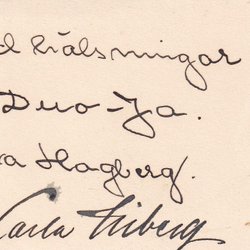 d hälsningar
Duo-Ja.
a Hagberg.
Carla Friberg